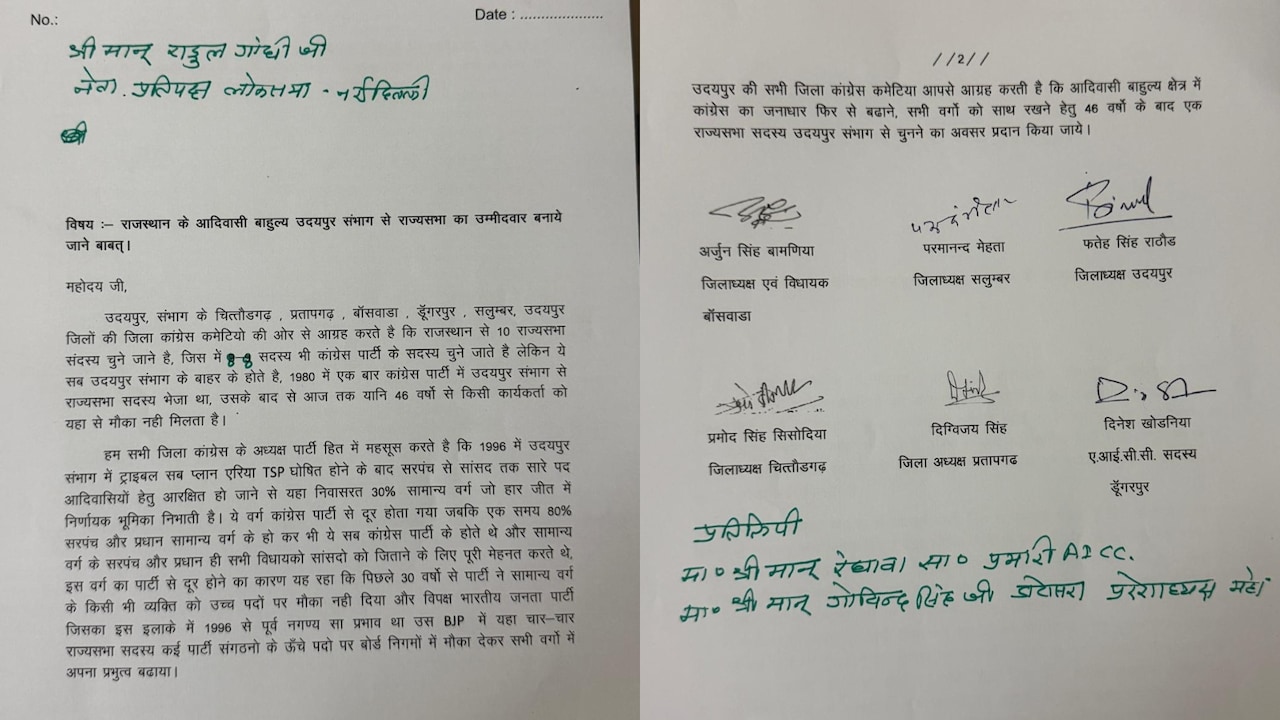 No.:
Date : .....................
श्री मान् राहुल गांधी जी
नेता. प्रतिपक्ष लोकसभा - नई दिल्ली
विषय :– राजस्थान के आदिवासी बाहुल्य उदयपुर संभाग से राज्यसभा का उम्मीदवार बनाये
जाने बाबत्।
महोदय जी,
उदयपुर, संभाग के चित्तौडगढ़ , प्रतापगढ़ , बॉसवाडा , डूँगरपुर , सलुम्बर, उदयपुर
जिलों की जिला कांग्रेस कमेटियो की ओर से आग्रह करते है कि राजस्थान से 10 राज्यसभा
संदस्य चुने जाने है, जिस में 8-8 सदस्य भी कांग्रेस पार्टी के सदस्य चुने जाते है लेकिन ये
सब उदयपुर संभाग के बाहर के होते है, 1980 में एक बार कांग्रेस पार्टी में उदयपुर संभाग से
राज्यसभा सदस्य भेजा था, उसके बाद से आज तक यानि 46 वर्षो से किसी कार्यकर्ता को
यहा से मौका नही मिलता है।
हम सभी जिला कांग्रेस के अध्यक्ष पार्टी हित में महसूस करते है कि 1996 में उदयपुर
संभाग में ट्राइबल सब प्लान एरिया TSP घोषित होने के बाद सरपंच से सांसद तक सारे पद
आदिवासियों हेतु आरक्षित हो जाने से यहा निवासरत 30% सामान्य वर्ग जो हार जीत में
निर्णायक भूमिका निभाती है। ये वर्ग कांग्रेस पार्टी से दूर होता गया जबकि एक समय 80%
सरपंच और प्रधान सामान्य वर्ग के हो कर भी ये सब कांग्रेस पार्टी के होते थे और सामान्य
वर्ग के सरपंच और प्रधान ही सभी विधायको सांसदो को जिताने के लिए पूरी मेहनत करते थे,
इस वर्ग का पार्टी से दूर होने का कारण यह रहा कि पिछले 30 वर्षो से पार्टी ने सामान्य वर्ग
के किसी भी व्यक्ति को उच्च पदों पर मौका नही दिया और विपक्ष भारतीय जनता पार्टी
जिसका इस इलाके में 1996 से पूर्व नगण्य सा प्रभाव था उस BJP में यहा चार–चार
राज्यसभा सदस्य कई पार्टी संगठनो के ऊँचे पदो पर बोर्ड निगमों में मौका देकर सभी वर्गो में
अपना प्रभुत्व बढाया।
//2//
उदयपुर की सभी जिला कांग्रेस कमेटिया आपसे आग्रह करती है कि आदिवासी बाहुल्य क्षेत्र में
कांग्रेस का जनाधार फिर से बढाने, सभी वर्गो को साथ रखने हेतु 46 वर्षो के बाद एक
राज्यसभा सदस्य उदयपुर संभाग से चुनने का अवसर प्रदान किया जाये।
अर्जुन सिंह बामणिया
जिलाध्यक्ष एवं विधायक
बॉसवाडा
परमानन्द मेहता
जिलाध्यक्ष सलुम्बर
फतेह सिंह राठौड
जिलाध्यक्ष उदयपुर
प्रमोद सिंह सिसोदिया
जिलाध्यक्ष चित्तौडगढ़
दिग्विजय सिंह
जिला अध्यक्ष प्रतापगढ
दिनेश खोडनिया
ए.आई.सी.सी. सदस्य
डूँगरपुर
प्रतिलिपी
मा॰ श्री मान् रंधावा सा॰ प्रभारी AICC.
मा॰ श्री मान् गोविन्द सिंह जी डोटासरा प्रदेशाध्यक्ष महो